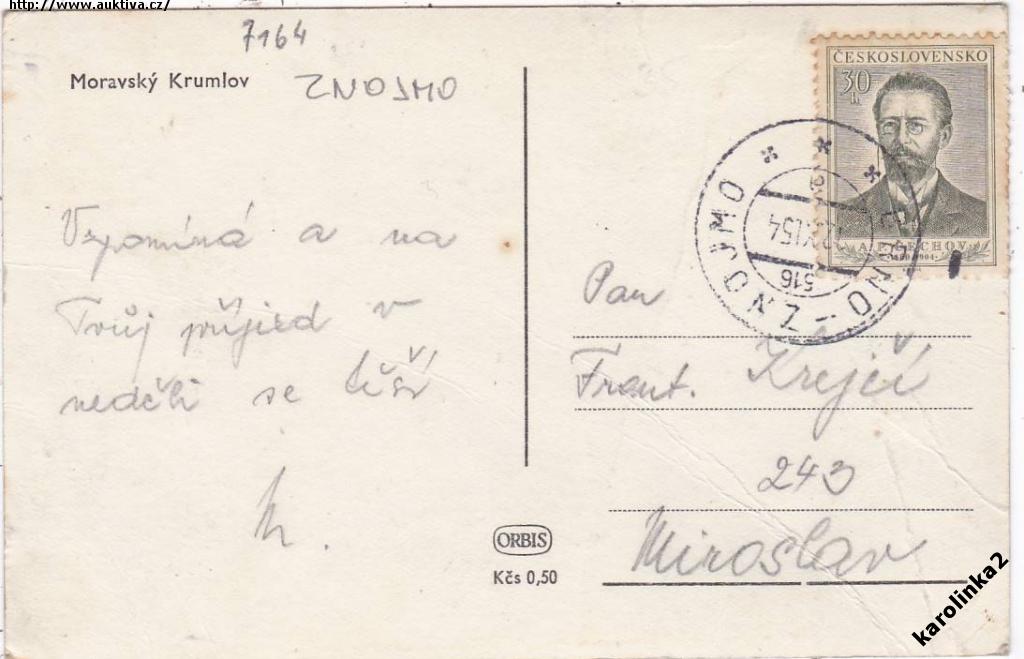 http://www.auktiva.cz/
7164
Moravský Krumlov
ZNOJMO
Vzpomíná a na
Tvůj příjezd v
neděli se těší
M.
ORBIS
Kčs 0,50
ČESKOSLOVENSKO
30 h
A.P. ČECHOV
1860-1904
ZNOJMO - BRNO
XI 54
516
Pan
Frant. Krejčí
243
Miroslav
karolinka2